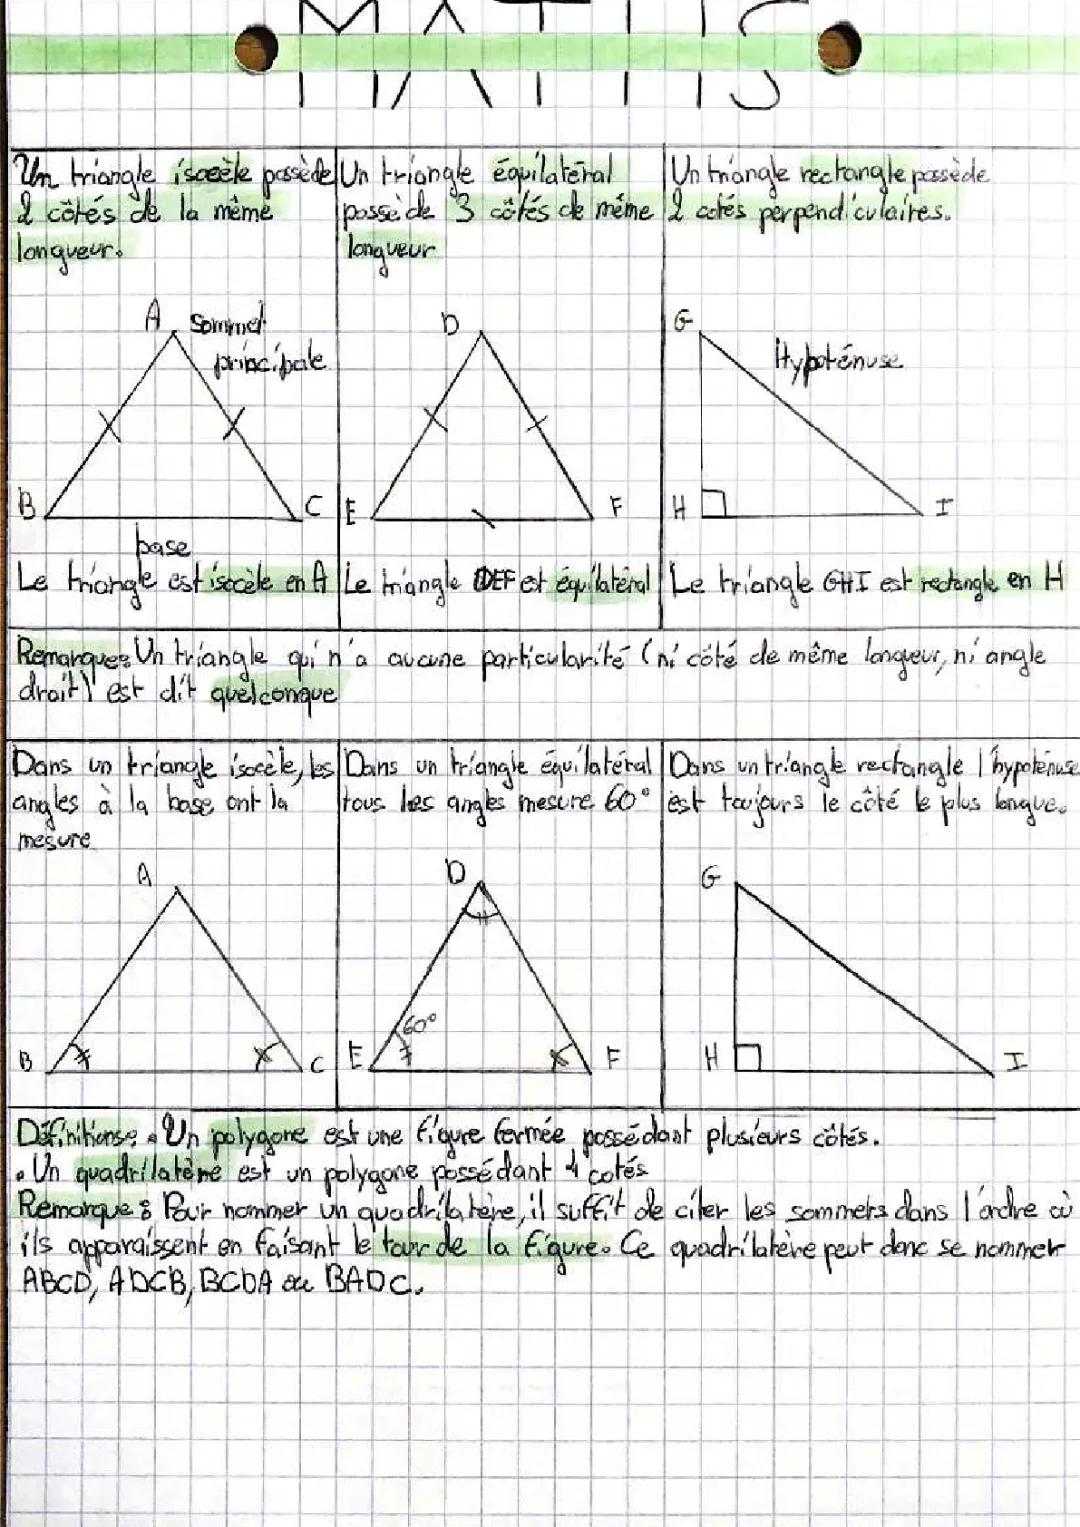 MATHS
Un triangle isocèle possède
2 côtés de la même
longueur.
Un triangle équilatéral
possède 3 côtés de même
longueur
Un triangle rectangle possède
2 cotés perpendiculaires.
A Sommet
principale
B
C
base
D
E
F
G
Hypoténuse
H
I
Le triangle est isocèle en A
Le triangle DEF est équilatéral
Le triangle GHI est rectangle en H
Remarque: Un triangle qui n'a aucune particularité (ni côté de même longueur, ni angle
droit) est dit quelconque
Dans un triangle isocèle, les
angles à la base ont la
mesure
Dans un triangle équilatéral
tous les angles mesure 60°
Dans un triangle rectangle l'hypoténuse
est toujours le côté le plus longue.
A
B
C
D
60°
E
F
G
H
I
Définitions: • Un polygone est une figure fermée possédant plusieurs côtés.
• Un quadrilatère est un polygone possédant 4 cotés
Remarque: Pour nommer un quadrilatère, il suffit de citer les sommets dans l'ordre où
ils apparaissent en faisant le tour de la figure. Ce quadrilatère peut donc se nommer
ABCD, ADCB, BCDA ou BADC.